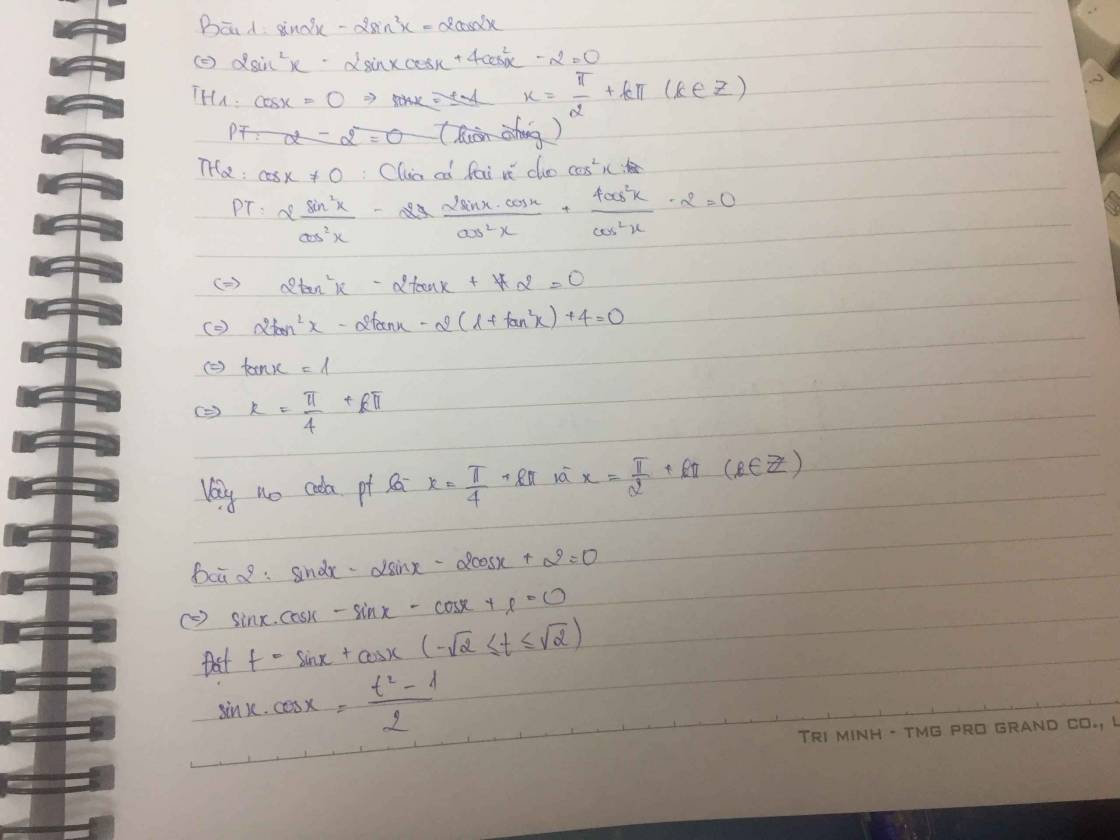 Bài 1: sin2x - 2sin²x = 2cos2x
(=) 2sin²x - 2sinxcosx + 4cos²x - 2 = 0
TH1: cosx = 0 => x = π/2 + kπ (k ∈ Z)
PT: 2 - 2 = 0 (luôn đúng)
TH2: cosx ≠ 0 : Chia cả hai vế cho cos²x
PT: 2 sin²x/cos²x - 2sinx.cosx/cos²x + 4cos²x/cos²x - 2 = 0
(=) 2tan²x - 2tanx + 2 = 0
(=) 2tan²x - 2tanx - 2(1 + tan²x) + 4 = 0
(=) tanx = 1
(=) x = π/4 + kπ
Vậy no của pt là x = π/4 + kπ và x = π/2 + kπ (k ∈ Z)
Bài 2: sin2x - 2sinx - 2cosx + 2 = 0
(=) sinx.cosx - sinx - cosx + 1 = 0
Đặt t = sinx + cosx (-√2 ≤ t ≤ √2)
sinx.cosx = t² - 1 / 2
TRI MINH - TMG PRO GRAND CO., L